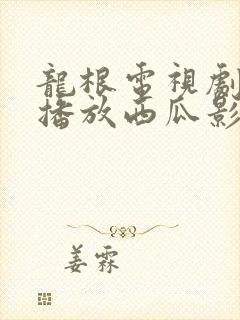 龍根電視劇
播放西瓜影
姜霖